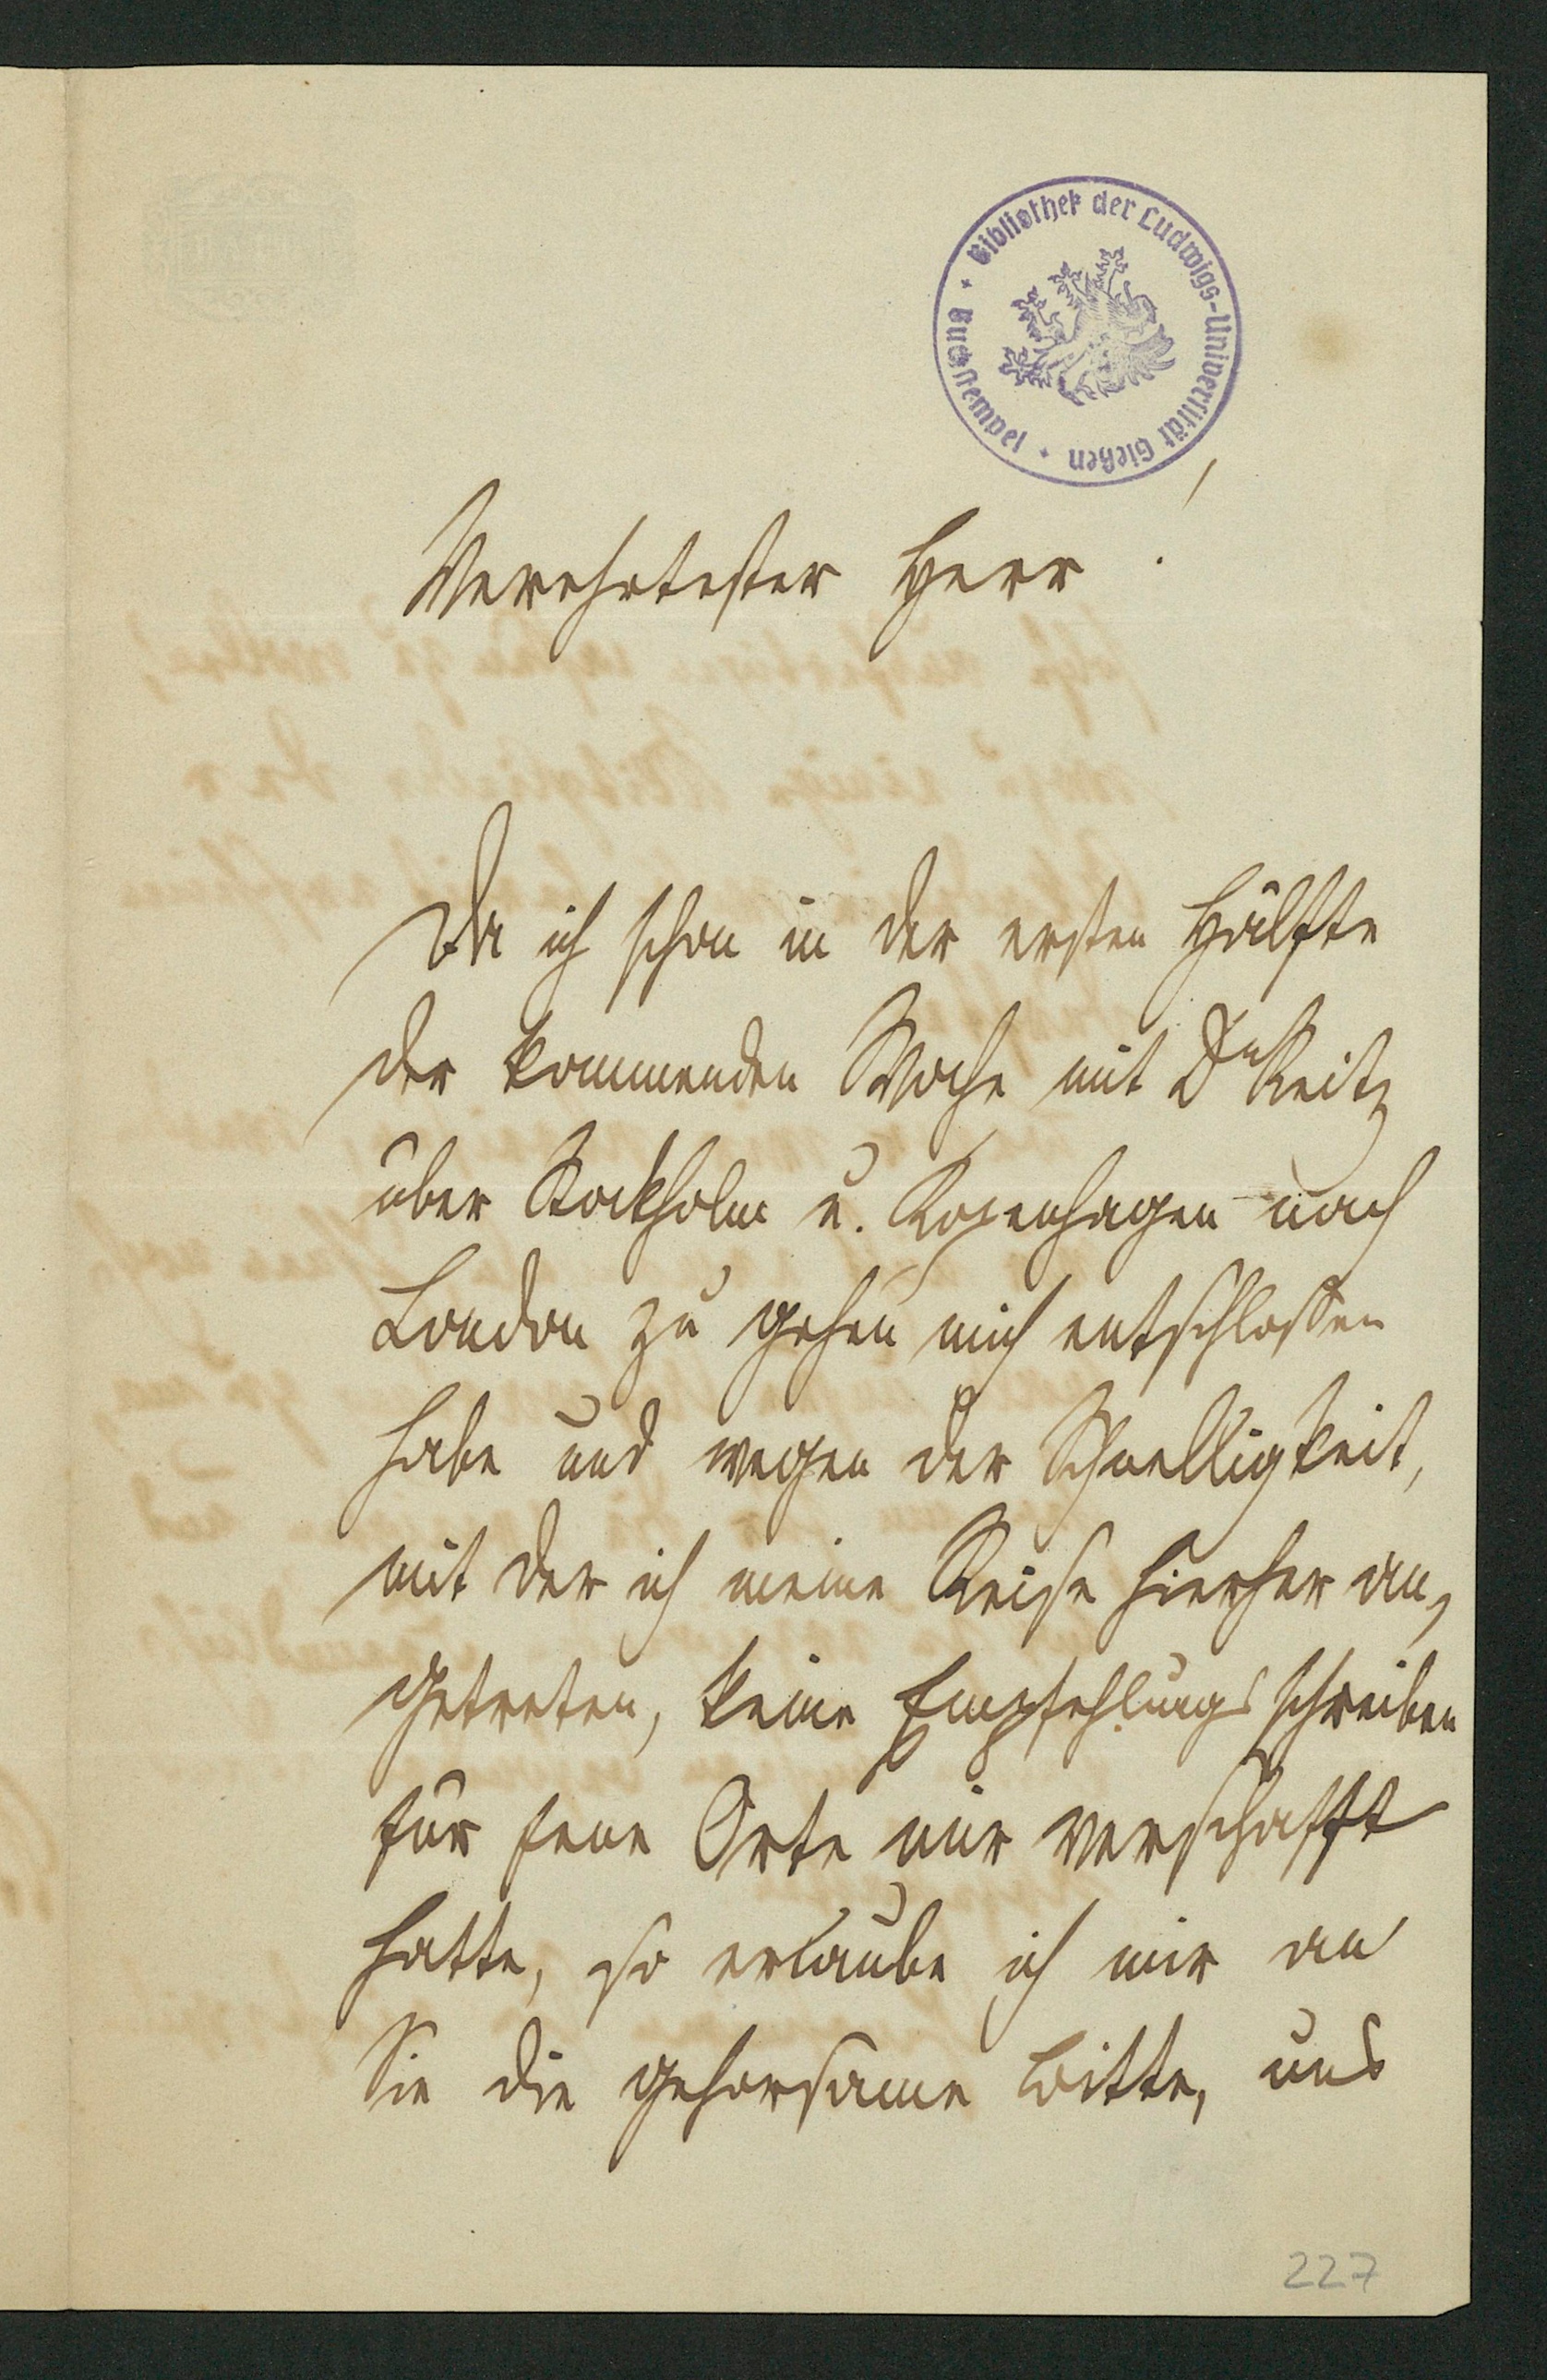 Bibliothek der Ludwigs-Universität Gießen + Buchstempel +
Verehrtester Herr!
Da ich schon in der ersten Hälfte
der kommenden Woche mit Dr Reitz
über Stockholm u. Kopenhagen nach
London zu gehen mich entschlossen
habe und wegen der Schnelligkeit,
mit der ich meine Reise hierher an-
getreten, keine Empfehlungsschreiben
für jene Orte mir verschafft
hatte, so erlaube ich mir an
Sie die gehorsame Bitte, uns
227